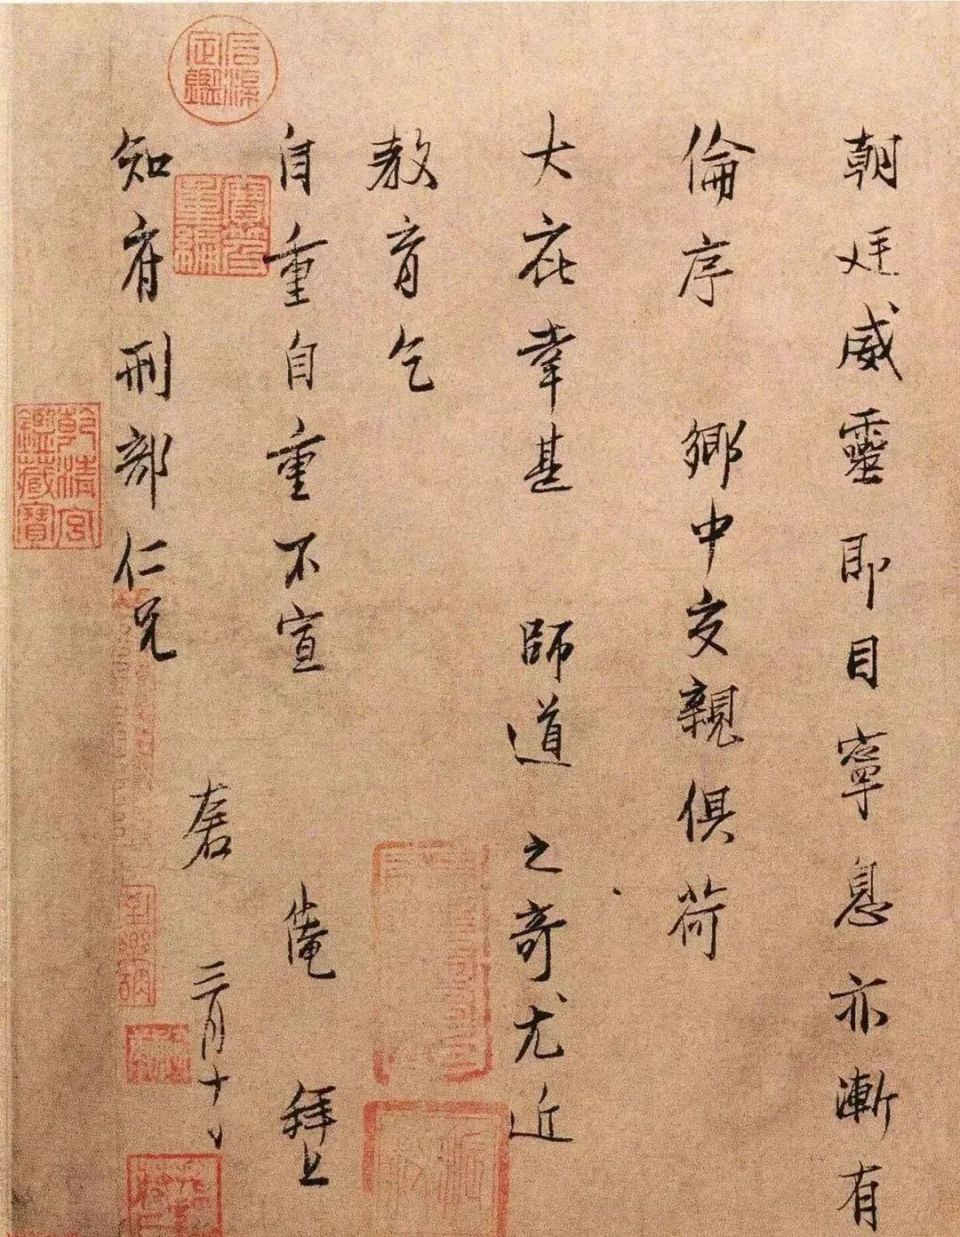 朝廷威靈即目寧息亦漸有
倫序 鄉中交親俱荷
大庇幸甚 師道之奇尤近
教育乞
自重自重不宣 俺 拜上
知府刑部仁兄
三月十
石渠定鑑
寶笈重編
乾清宮鑑藏寶